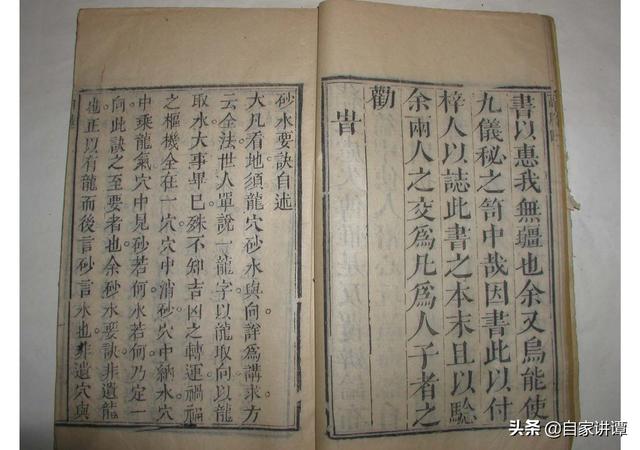 書以惠我無疆也余又烏能使
九儀秘之笥中哉因書此以付
梓人以誌此書之本末且以騐
余兩人之交為凡為人子者之
勸
旹
砂水要訣自述
大凡看地須龍穴砂水與向詳為講求方
云全法世人單說一龍字以龍取向以龍
取水大事畢巳殊不知吉凶之轉運禍福
之樞機全在一穴穴中消砂穴中納水穴
中乘龍氣穴中見砂若何水若何乃定一
向此訣之至要者也余砂水要訣非遺龍
也正以有龍而後言砂言水也非遺穴與
头条 @自家讲谭